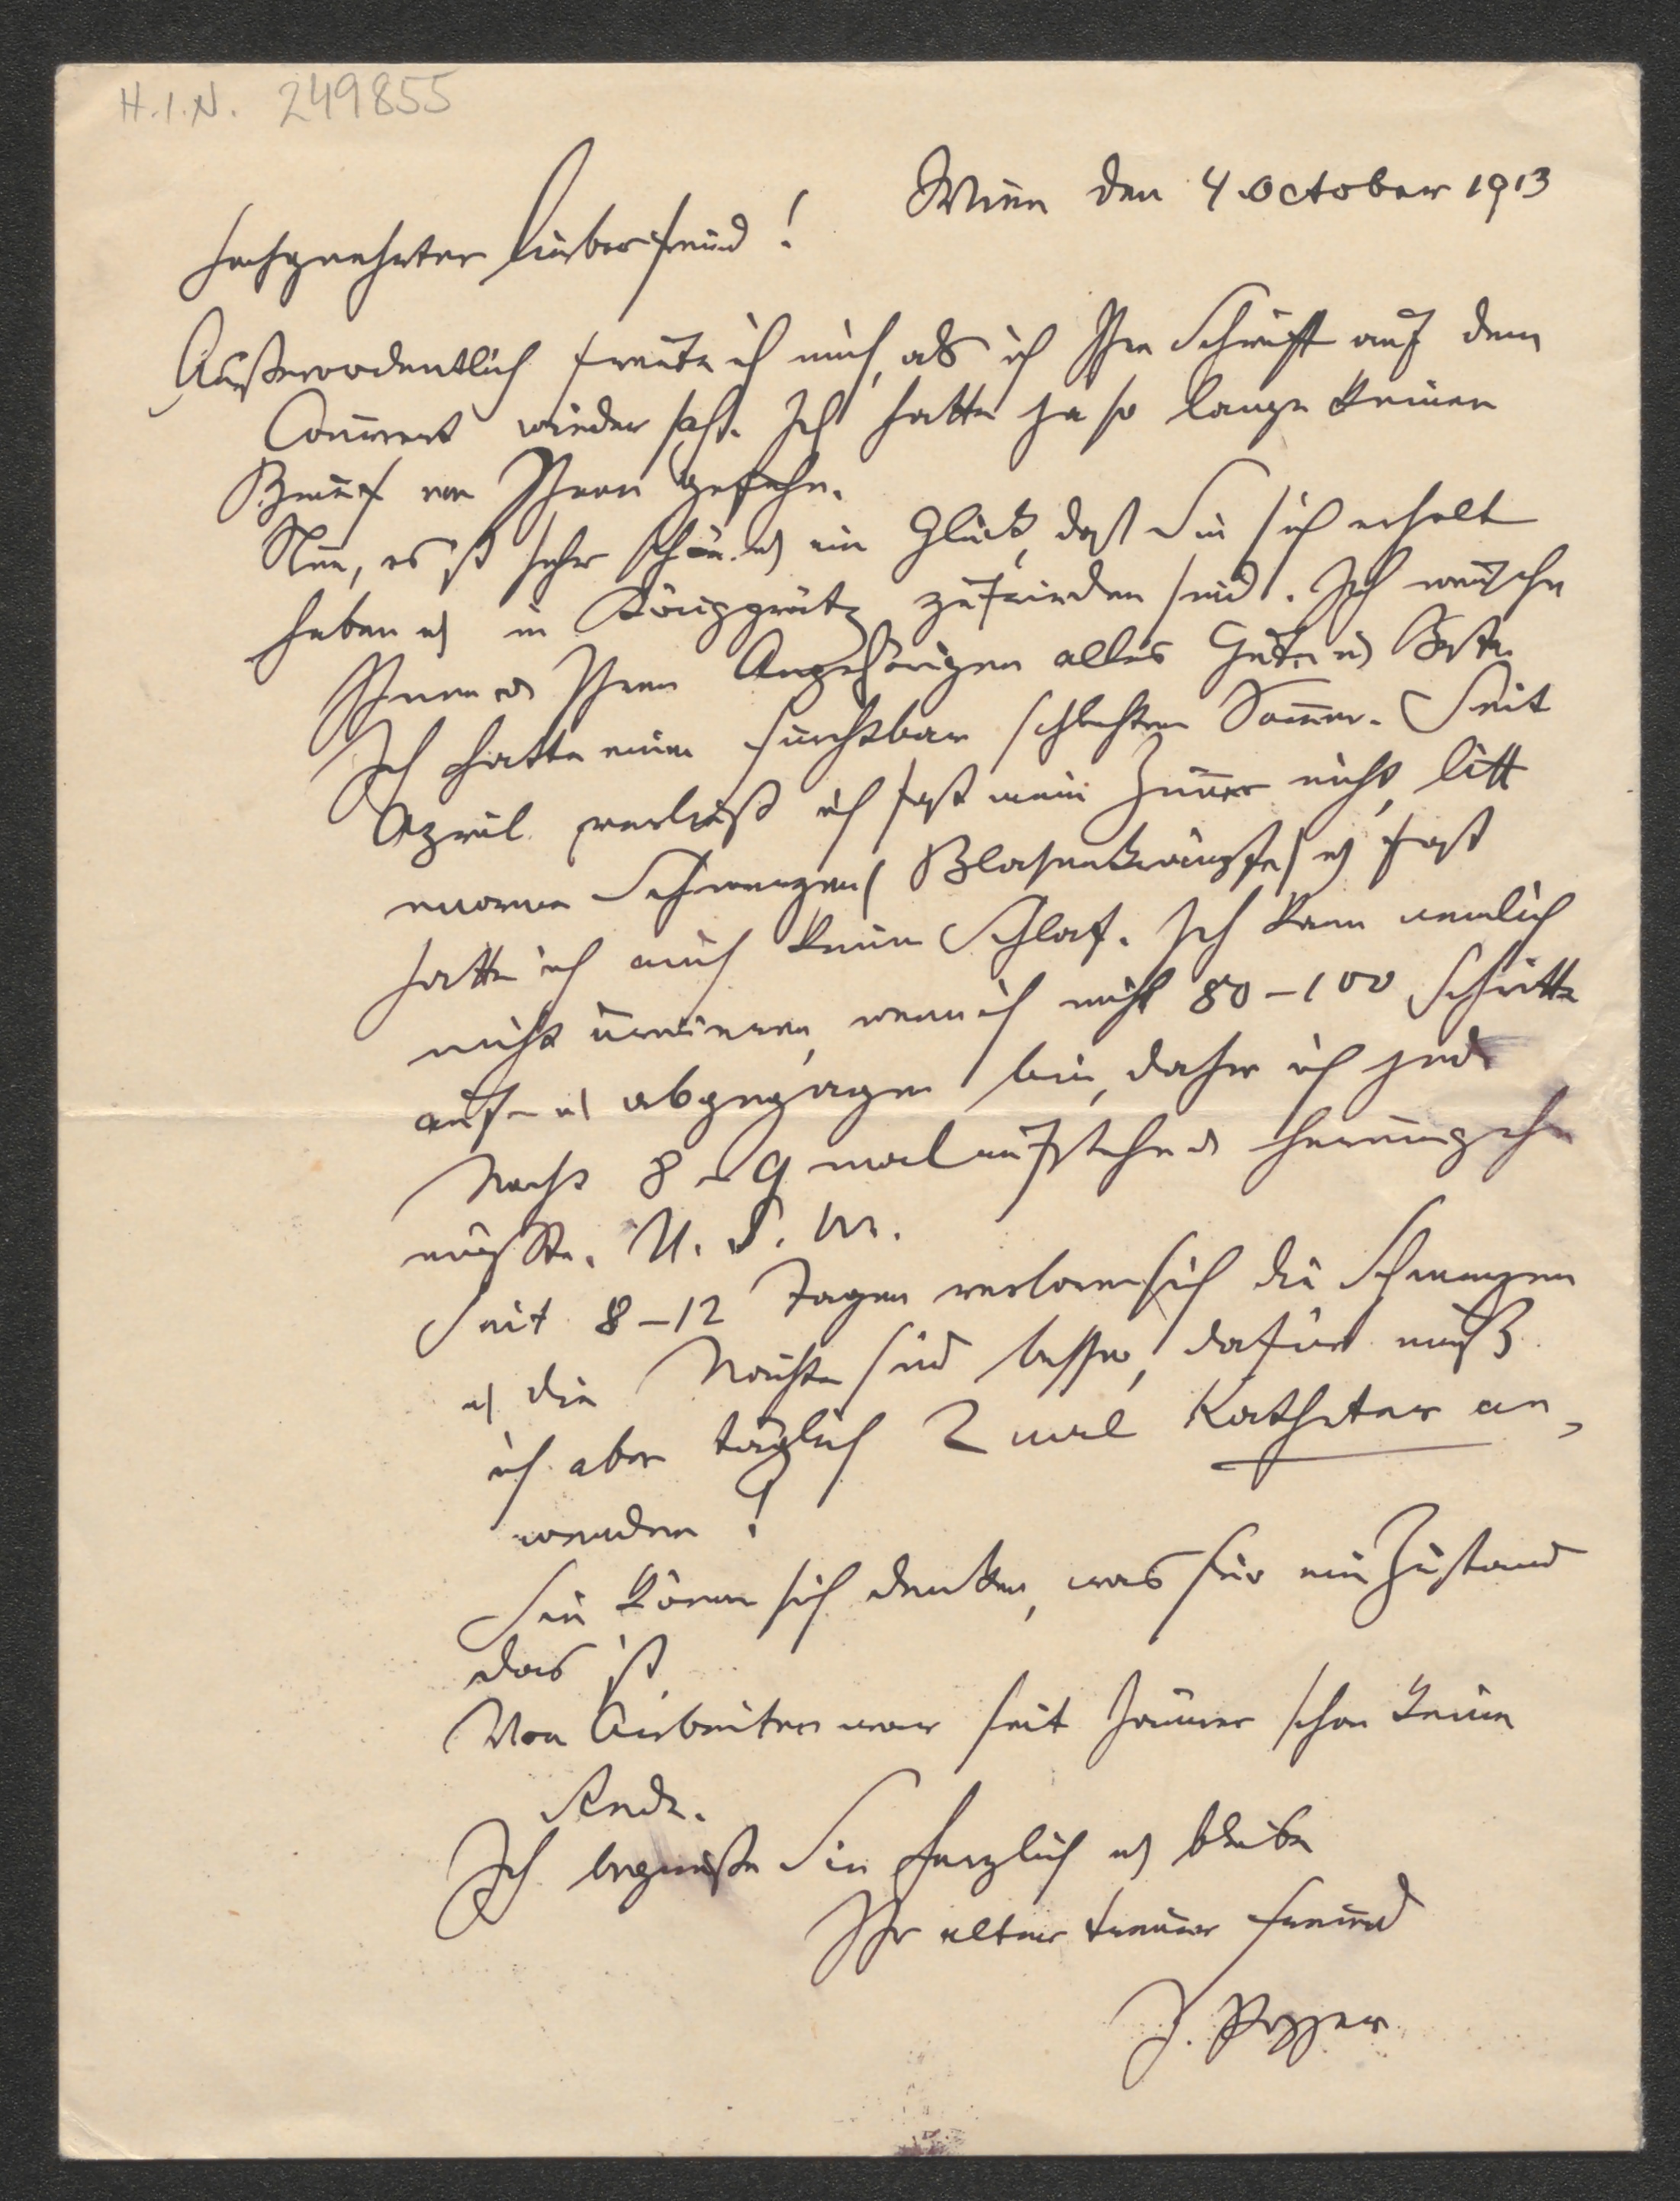 H.I.N. 249855
Wien den 4. October 1913
Hochgeehrter lieber Freund!
Außerordentlich freute ich mich, als ich Ihre Schrift auf dem
Couvert wieder sah. Ich hatte ja so lange keinen
von Ihnen gesehen.
Nun, es ist sehr schön u ein Glück, daß Sie sich erholt
haben u in Königgrätz zufrieden sind. Ich wünsche
Ihnen u Ihren Angehörigen alles Gute u Beste.
Ich hatte einen furchtbar schlechten Sommer. Seit
April verließ ich fast mein Zimmer nicht, litt
enorme Schmerzen (Blasenkrämpfe) u fast
hatte ich auch keinen Schlaf. Ich kann nemlich
nicht uriniren, wenn ich nicht 80–100 Schritte
auf- u abgegangen bin, daher ich jede
Nacht 8–9 mal aufstehen u herumgehen
mußte. U. S. W.
Seit 8–12 Tagen verloren sich die Schmerzen
u die Nächte sind besser, dafür muß
ich aber täglich 2 mal Katheter an-
wenden!
Sie können sich denken, was für ein Zustand
das ist.
Von Arbeiten war seit Jänner schon keine
Rede.
Ich begrüße Sie herzlich u bleibe
Ihr alter treuer Freund
J. Popper